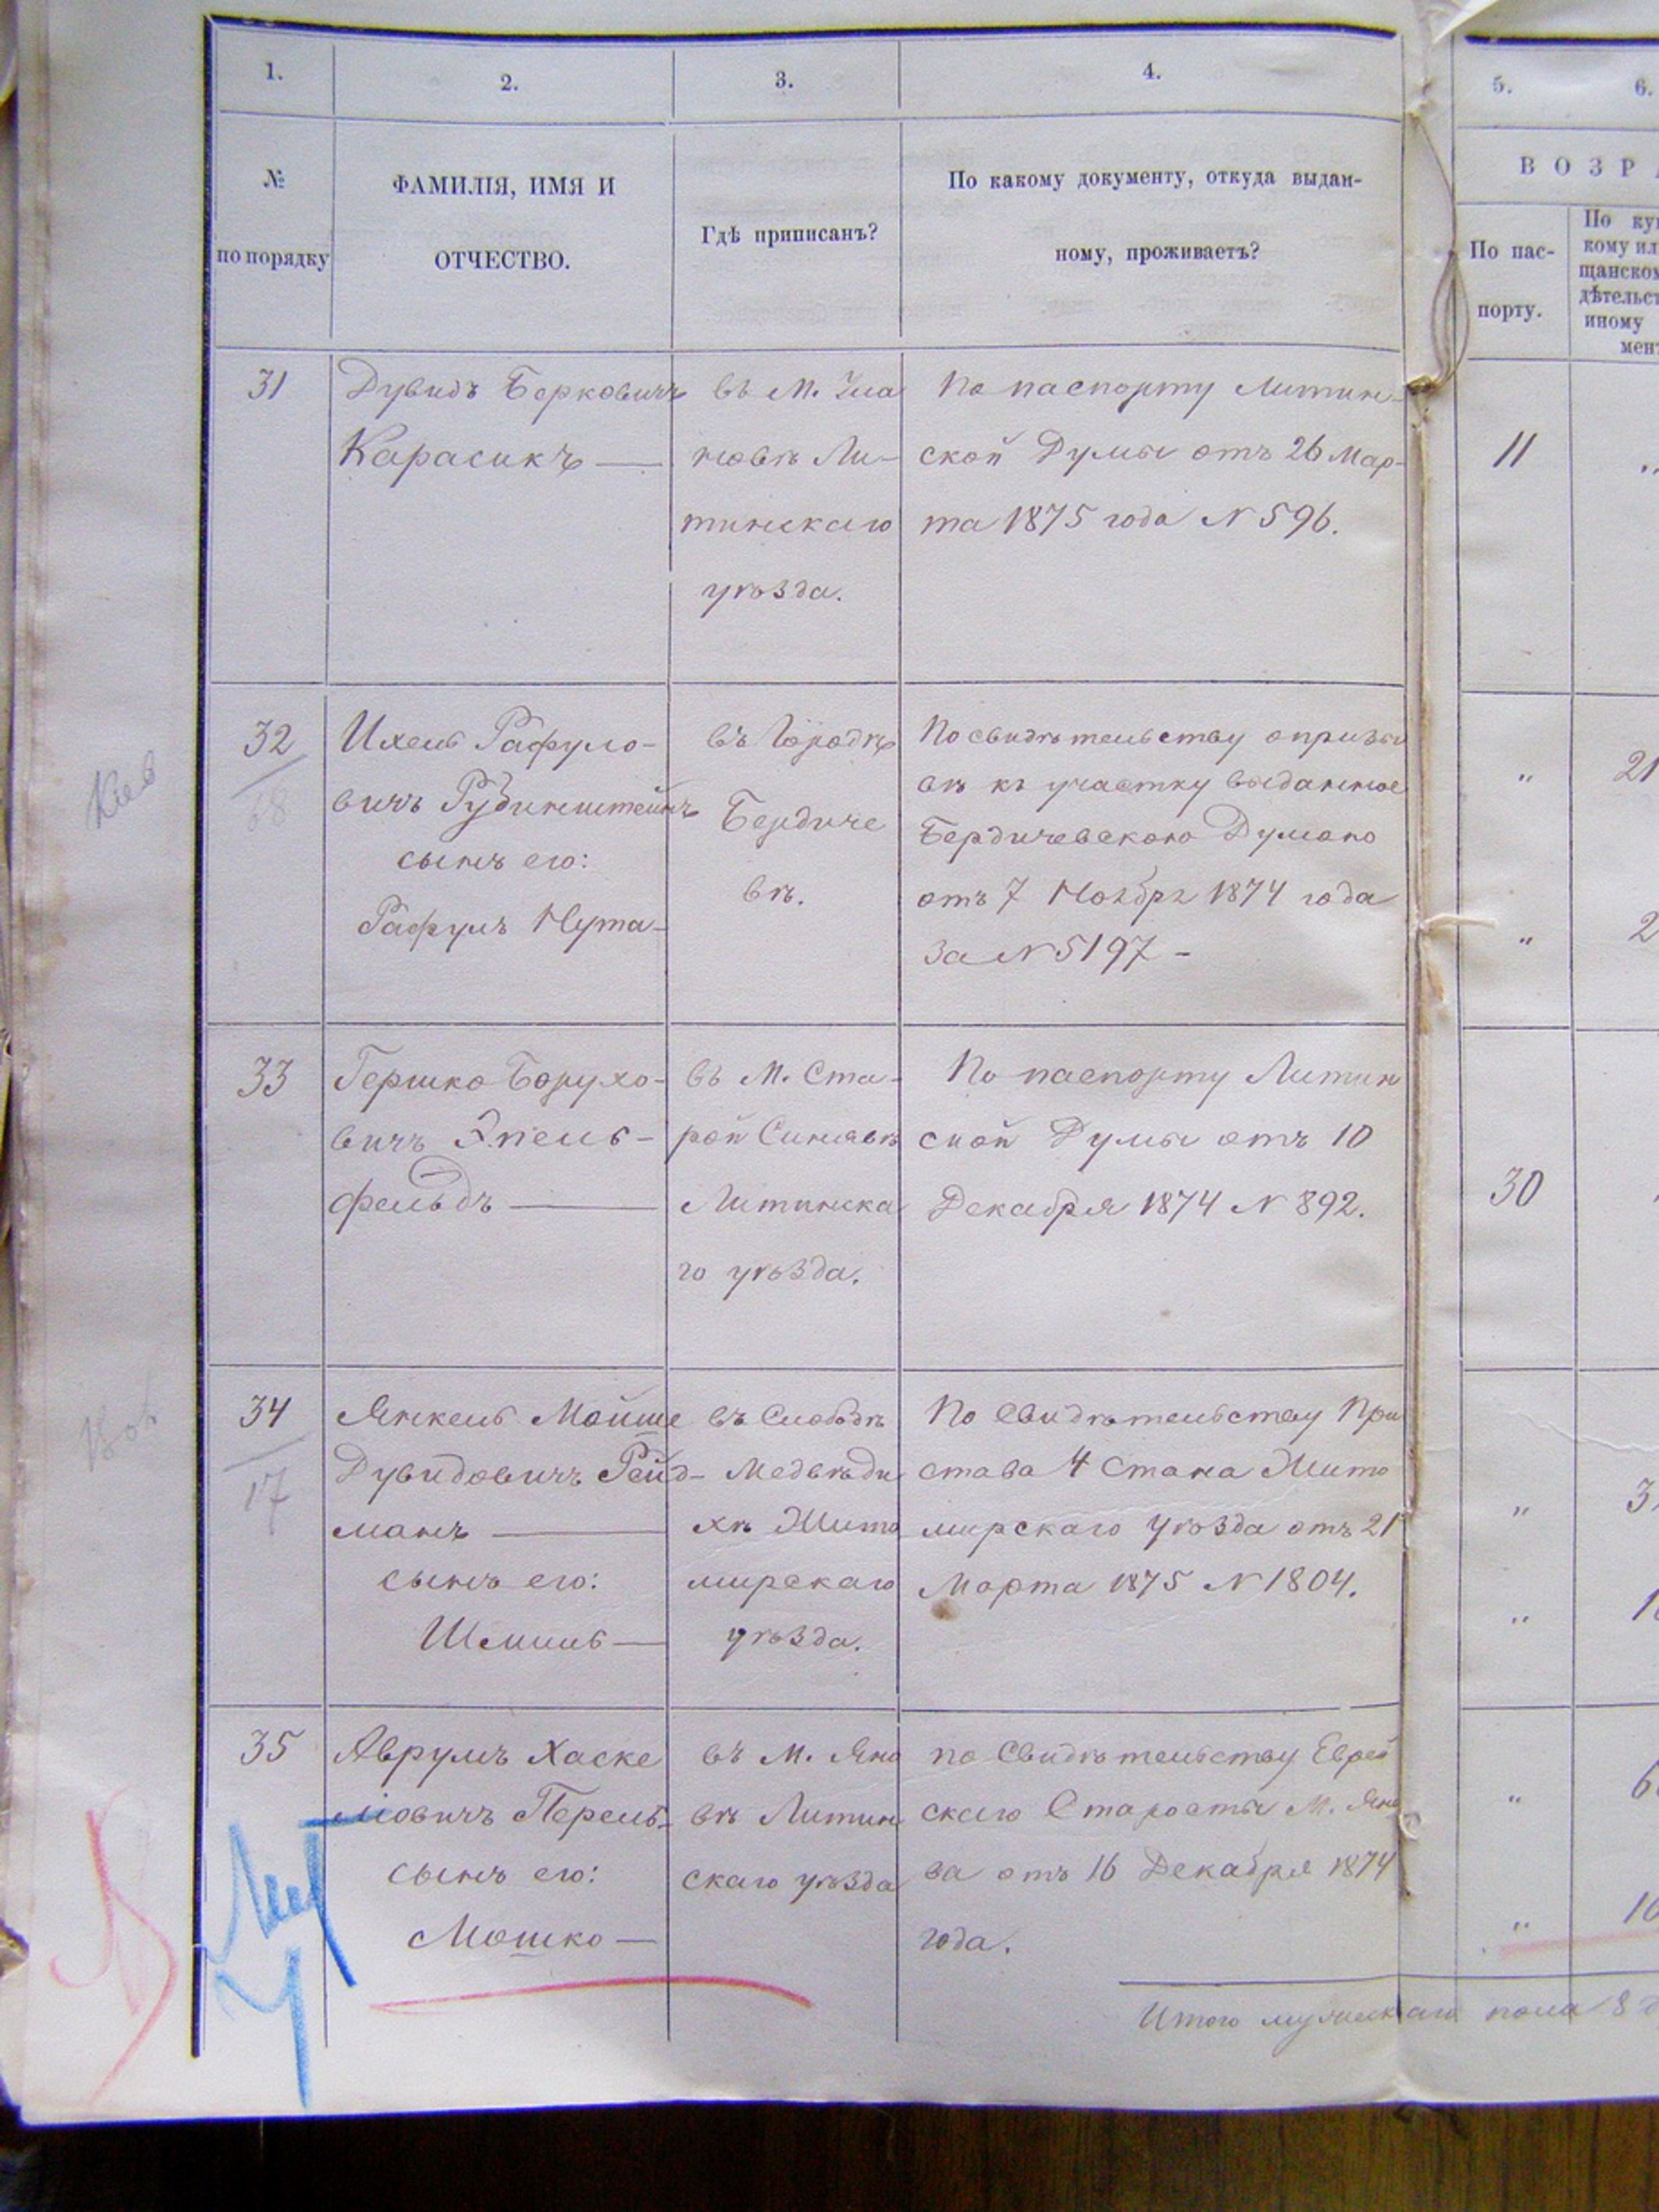 1.
2.
3.
4.
5.
6.
№
по порядку
ФАМИЛІЯ, ИМЯ И
ОТЧЕСТВО.
Гдѣ приписанъ?
По какому документу, откуда выдан-
ному, проживаетъ?
ВОЗРА
По пас-
порту.
По куп
кому ил
щанском
дѣтельст
иному
мен
31
Дувидъ Берковичъ
Карасикъ —
въ М. Ула
новѣ Ли-
тинскаго
уѣзда.
По паспорту Литин-
ской Думы отъ 26 Мар-
та 1875 года N 596.
11
„
32
68
Ихель Рафуло-
вичъ Рубинштейнъ
сынъ его:
Рафулъ Нута-
въ Городѣ
Бердиче
вѣ.
По свидѣтельству о призы
вѣ къ участку выданное
Бердичевскою Думою
отъ 7 Ноября 1874 года
За N 5197 -
„ 21
„ 2
Кіев
33
Гершко Борухо-
вичъ Эпель-
фельдъ —
въ М. Ста-
рой Синявѣ
Литинска
го уѣзда.
По паспорту Литин
ской Думы отъ 10
Декабря 1874 N 892.
30
34
17
Янкель Мойше
Дувидовичъ Рейд-
манъ —
сынъ его:
Шмиль —
въ Слободѣ
Медвѣди
хѣ Жито
мирскаго
уѣзда.
По Свидѣтельству При
става 4 Стана Жито
мирскаго Уѣзда отъ 21
Марта 1875 N 1804.
„ 3
„ 1
35
Аврумъ Хаске
лîовичъ Перель-
сынъ его:
Мошко —
въ М. Яно
вѣ Литин
скаго уѣзда
по Свидѣтельству Еврей
скаго Старосты М. Яно
ва отъ 16 Декабря 1874
года.
„ 6
„ 10
Итого мужскаго пола 8 д